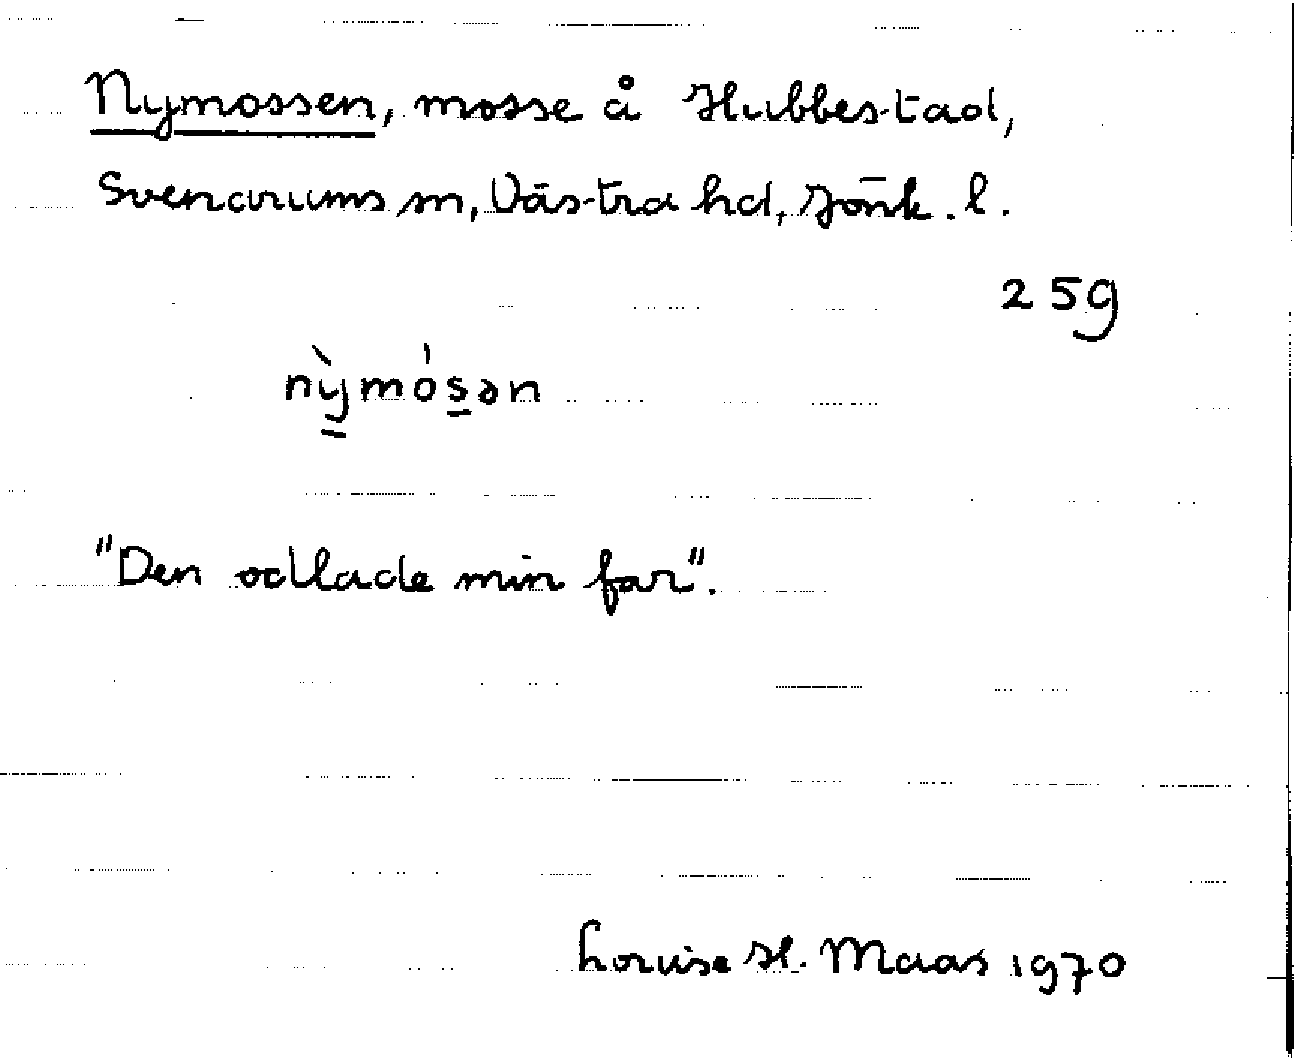 Nymossen, mosse å Hubbestad,
Svenarums sn, Västra hd, Jönk. l.
259
nỳmósən
"Den odlade min far".
Louise H. Maas 1970